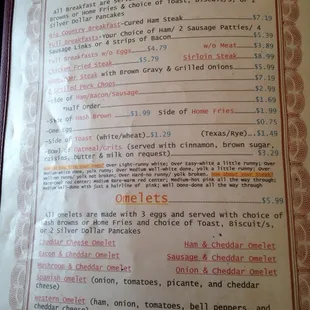 All Breakfast are served
Browns or Home Fries & choice of Toast, Biscuit/s, or 2
Silver Dollar Pancakes
Big Country Breakfast-Cured Ham Steak $7.19
Full Breakfast- Your Choice of Ham/ 2 Sausage Patties/ 4
Sausage Links or 4 Strips of Bacon $5.39
Full Breakfasts w/o Eggs $4.79 w/o Meat $3.89
Chicken Fried Steak $5.39 Sirloin Steak $8.99
Steak with Brown Gravy & Grilled Onions $5.99
Grilled Pork Chops
-Side of Ham/Bacon/Sausage
*Half Order $1.69
-Side of Hash Brown $1.99 Side of Home Fries $1.99
-One Egg $0.75
-Side of Toast (white/wheat)…$1.29 (Texas/Rye)…$1.49
-Bowl of Oatmeal/Grits (served with cinnamon, brown sugar,
raisins, butter & milk on request) $3.29
Omelets $5.99
All omelets are made with 3 eggs and served with choice of
Hash Browns or Home Fries and choice of Toast, Biscuit/s,
or 2 Silver Dollar Pancakes
Cheddar Cheese Omelet Ham & Cheddar Omelet
Bacon & Cheddar Omelet Sausage & Cheddar Omelet
Mushroom & Cheddar Omelet Onion & Cheddar Omelet
Spanish Omelet (onion, tomatoes, picante, and cheddar
cheese)
Western Omelet (ham, onion, tomatoes, bell peppers, and
cheddar cheese)